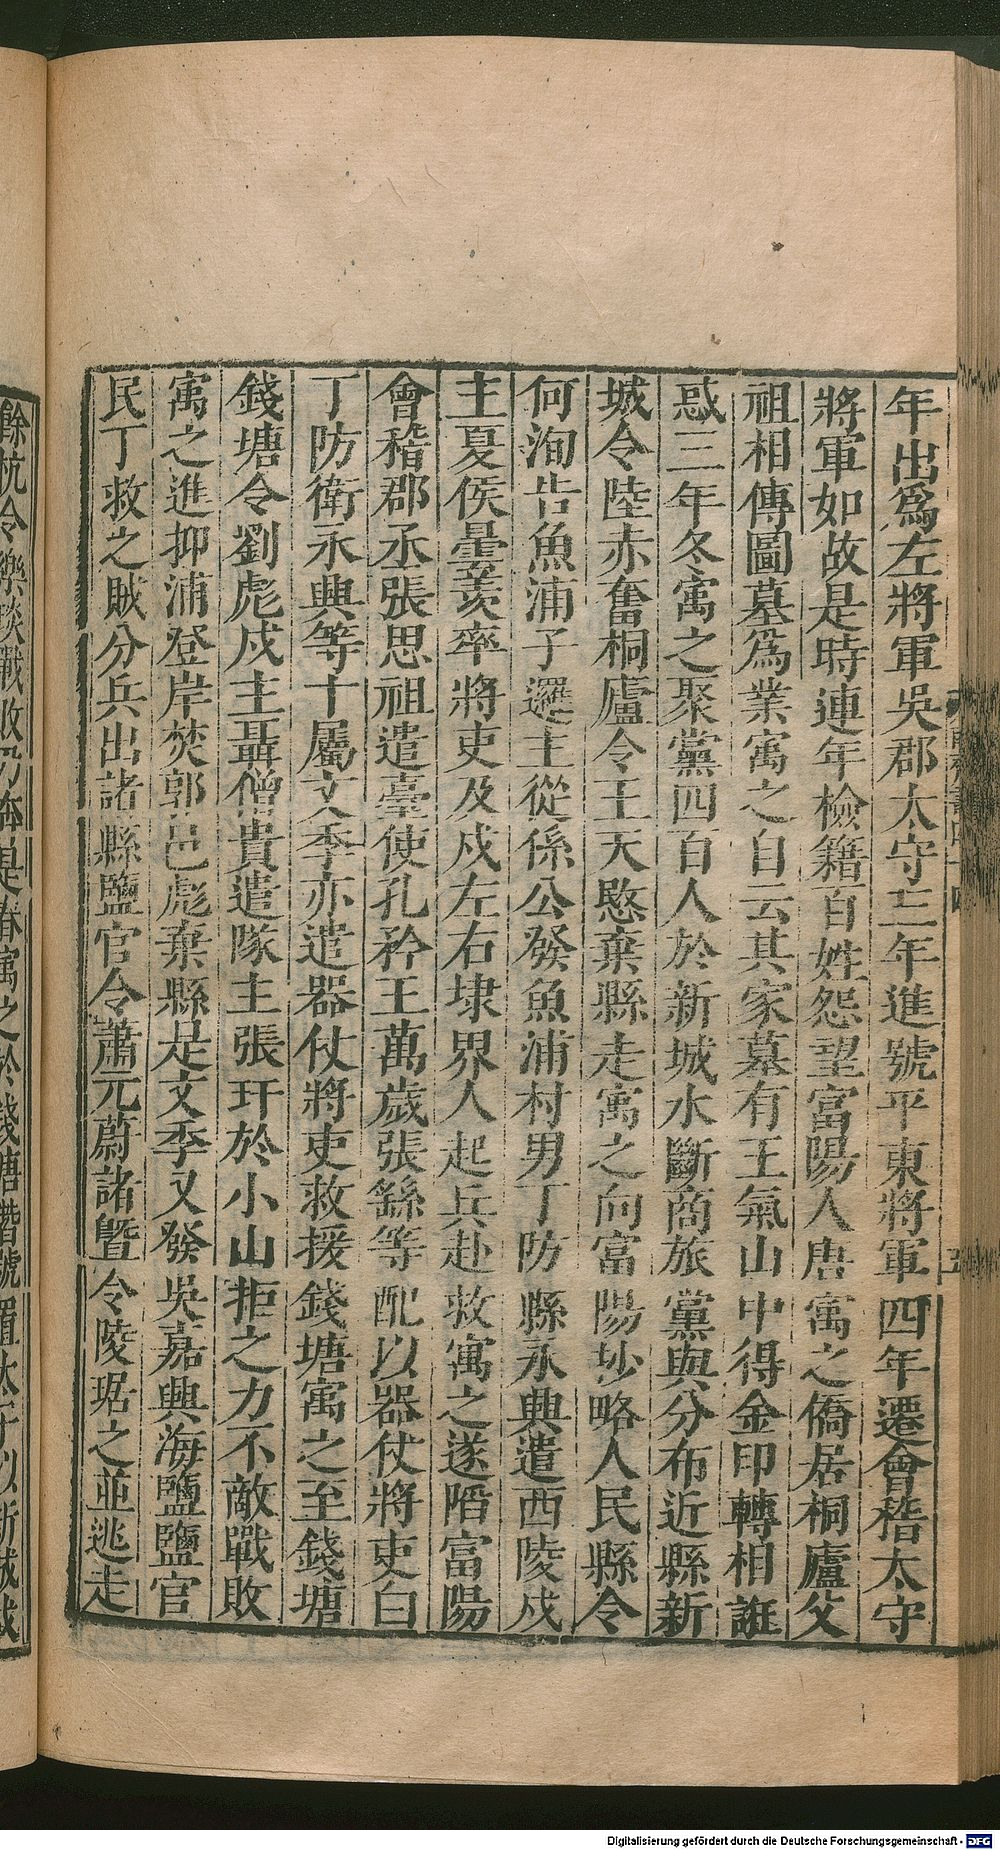 年出爲左將軍吳郡太守三年進號平東將軍四年遷會稽太守
將軍如故是時連年檢籍百姓怨望富陽人唐寓之僑居桐廬父
祖相傳圖墓爲業寓之自云其家墓有王氣山中得金印轉相誑
惑三年冬寓之聚黨四百人於新城水斷商旅黨與分布近縣新
城令陸赤奮桐廬令王天愍棄縣走寓之向富陽抄略人民縣令
何洵告魚浦子邏主從係公發魚浦村男丁防縣永興遣西陵戍
主夏侯曇羨率將吏及戍左右埭界人起兵赴救寓之遂陷富陽
會稽郡丞張思祖遣臺使孔矜王萬歲張繇等配以器仗將吏白
丁防衛永興等十屬文季亦遣器仗將吏救援錢塘寓之至錢塘
錢塘令劉彪戍主聶僧貴遣隊主張玕於小山拒之力不敵戰敗
寓之進抑浦登岸焚郭邑彪棄縣走文季又發吳嘉興海鹽鹽官
民丁救之賊分兵出諸縣鹽官令蕭元蔚諸曁令陵琚之並逃走
餘杭令樂琰戰敗乃奔是春寓之於錢塘僭號置太子以新城戍
Digitalisierung gefördert durch die Deutsche Forschungsgemeinschaft - DFG